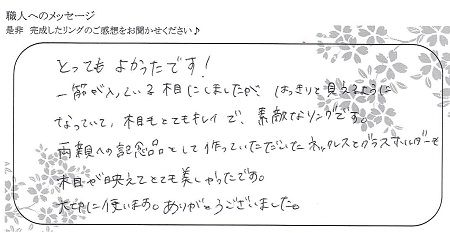 職人へのメッセージ
是非 完成したリングのご感想をお聞かせください♪
とってもよかったです！
一筋が入っている木目にしましたが、はっきりと見えるように
なっていて、木目もとてもキレイで、素敵なリングです。
両親への記念品として作っていただいたネックレスとグラスホルダーも
木目が映えてとても美しかったです。
大切に使います。ありがとうございました。